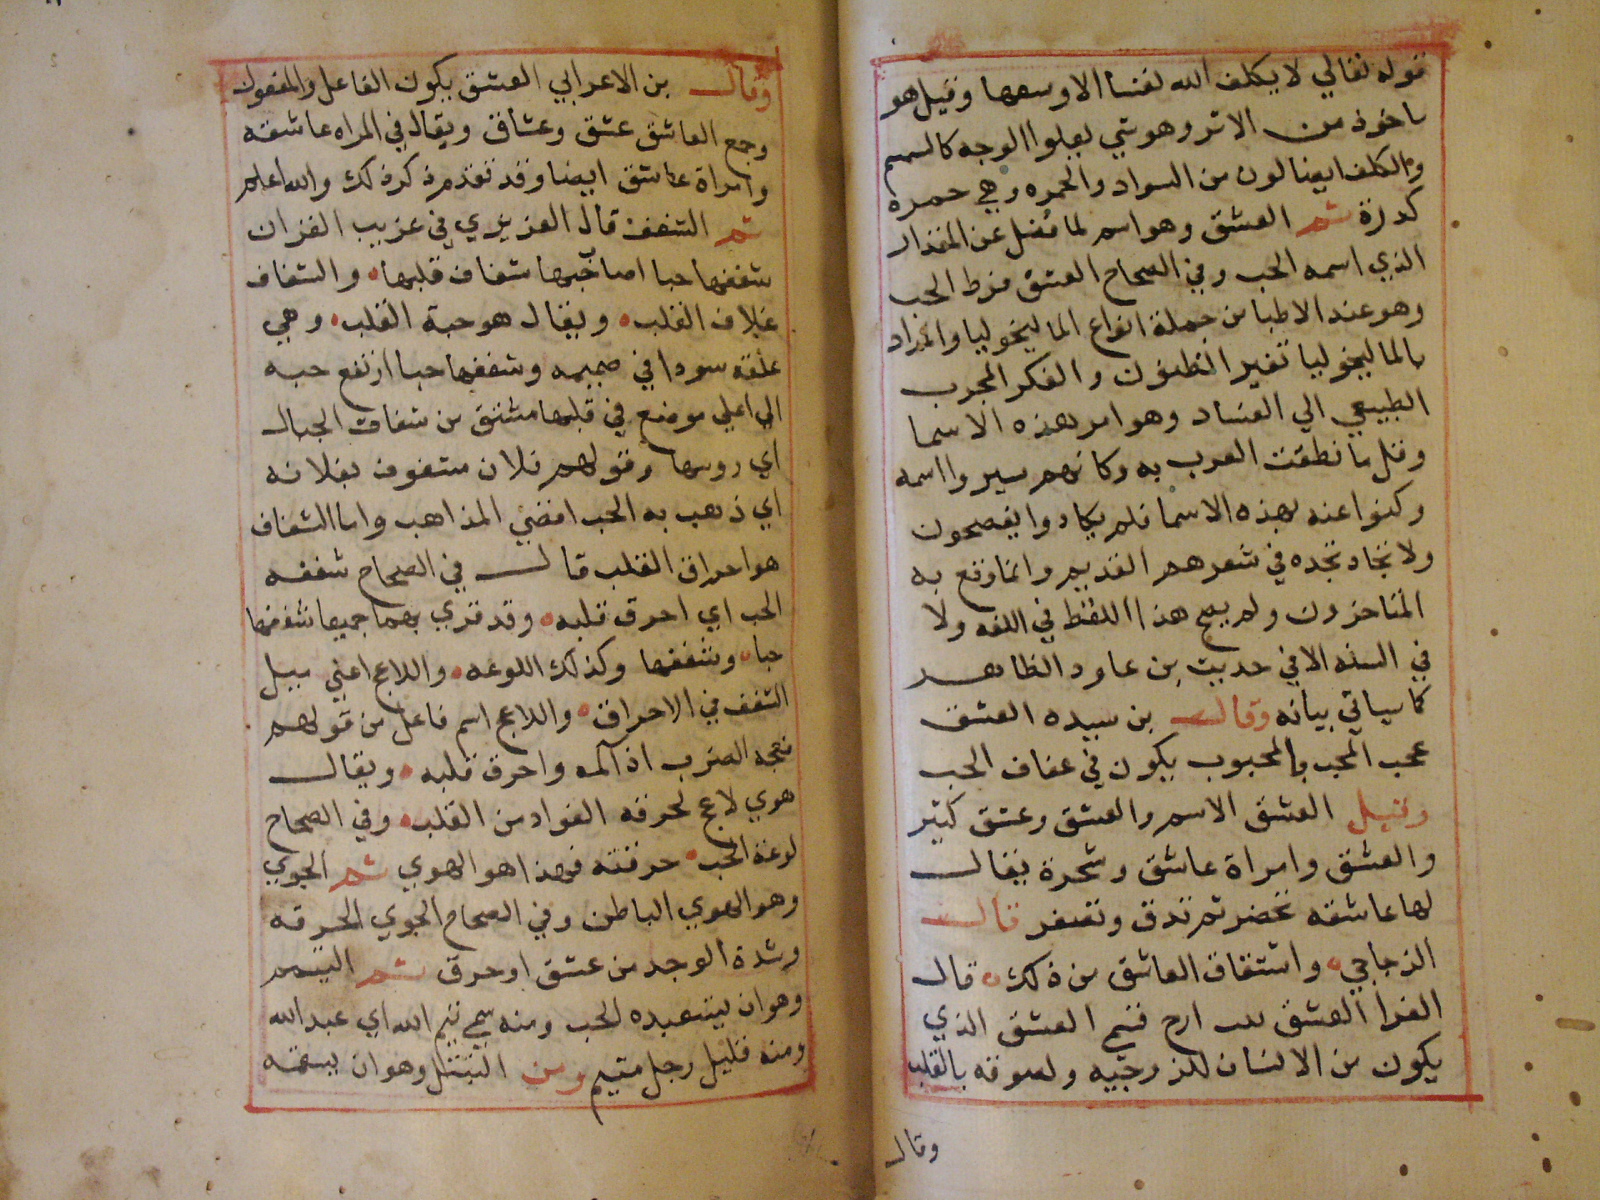 قوله تعالي لا يكلف الله نفسا الا وسعها وقيل هو
ماخوذ من الاثر وهو شي يعلوا الوجه كالسمسم
والكلف ايضا لون من السواد والحمره وهي حمرة
كدرة ثم العشق وهو اسم لما فضل عن المقدار
الذي اسمه الحب وفي الصحاح العشق فرط الحب
وهو عند الاطبا من جملة انواع الماليخوليا والمراد
بالماليخوليا تغير الظنون والفكر المجرب
الطبيعي الي الفساد وهو امر هذه الاسما
وقل ما نطقت العرب به وكانهم ستروا اسمه
وكنوا عنه بهذه الاسما فلم يكادوا يفصحون
ولا تكاد تجده في شعرهم القديم وانما وقع به
المتاخرون ولم يصح هذا اللفظ في اللغه ولا
في السنه الا في حديث بن عاود الظاهر
كما سياتي بيانه وقال بن سيده العشق
عجب المحب بالمحبوب يكون في عفاف الحب
وقيل العشق الاسم والعشق وعشق كثير
والعشق وامراة عاشق وشجرة يقال
لها عاشقه تخضر ثم تدق وتصفر قال
الزجاجي واشتقاق العاشق من ذلك قال
الفرا العشق نبت لزج فسمي العشق الذي
يكون من الانسان للزوجته ولصوقه بالقلب
وقال
وقال بن الاعرابي العشق يكون الفاعل والمفعول
وجمع العاشق عشق وعشاق ويقال في المراه عاشقه
وامراة عاشق ايضا وقد تقدم ذكر ذلك والله اعلم
ثم الشغف قال العزيزي في غريب القران
شغفها حبا اصاب حبها شغاف قلبها والشغاف
غلاف القلب ويقال هو حبة القلب وهي
علقة سودا في صميمه وشغفها حبا ارتفع حبه
الي اعلي موضع في قلبها مشتق من شعفات الجبال
اي روسها وقولهم فلان مشغوف بفلانه
اي ذهب به الحب اقضي المذاهب واما الشغاف
هو احراق القلب قال في الصحاح شغفه
الحب اي احرق قلبه وقد قري بهما جميعا شغفها
حبا وشغفها وكذلك اللوعه واللاعج اعني مثل
الشغف في الاحراق واللاعج اسم فاعل من قولهم
لعجه الضرب اذ المه واحرق قلبه ويقال
هوي لاعج لحرقه الفواد من القلب وفي الصحاح
لوعة الحب حرقته فهذا هو الهوي ثم الجوي
وهو الهوي الباطن وفي الصحاح الجوي الحرقه
وشدة الوجد من عشق او حرق ثم التيم
وهو ان يستعبده الحب ومنه سمي تيم الله اي عبد الله
ومنه قليل رجل متيم ومن التبتل وهو ان يسقمه